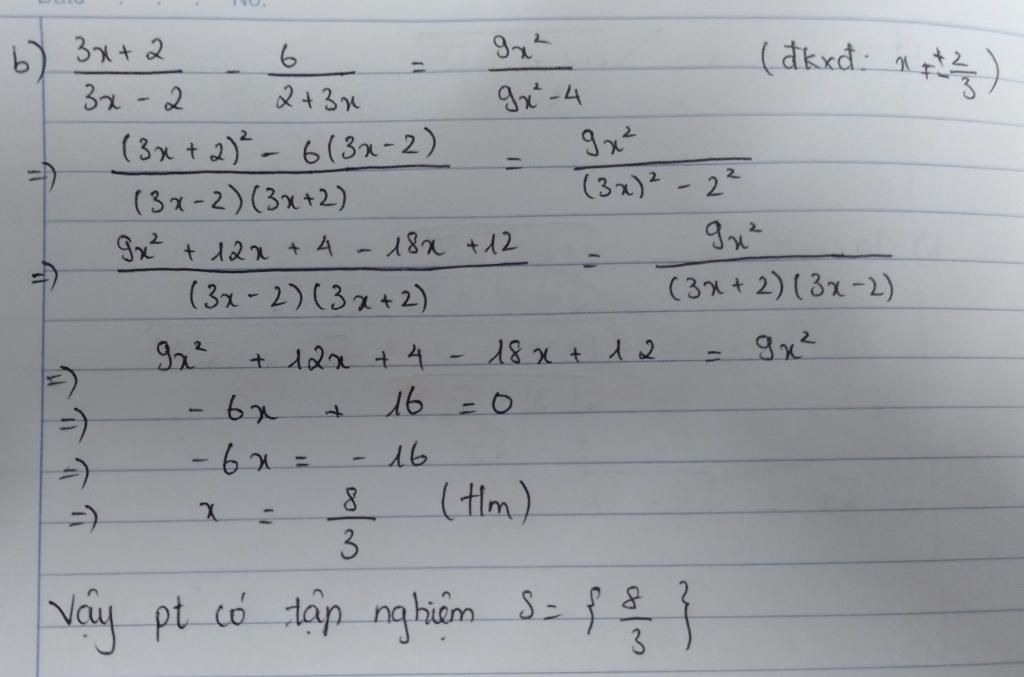 Date . . . No.
b) \frac{3x+2}{3x-2} - \frac{6}{2+3x} = \frac{9x²}{9x²-4} (đkxđ: x ≠ ±\frac{2}{3})
=> \frac{(3x+2)² - 6(3x-2)}{(3x-2)(3x+2)} = \frac{9x²}{(3x)² - 2²}
=> \frac{9x² + 12x + 4 - 18x + 12}{(3x-2)(3x+2)} = \frac{9x²}{(3x+2)(3x-2)}
=> 9x² + 12x + 4 - 18x + 12 = 9x²
=> - 6x + 16 = 0
=> - 6x = - 16
=> x = \frac{8}{3} (t/m)
Vậy pt có tập nghiệm S = { \frac{8}{3} }